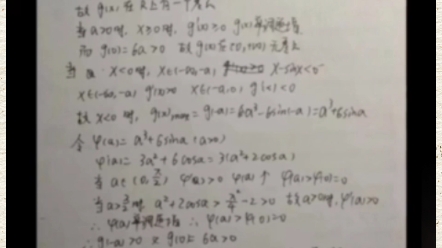 故 g(x) 在 R 上有一个零点
当 a>0时, x≥0时, g'(x)≥0 g(x)单调递增
而 g(0)=6a>0 故 g(x)在(0,+∞)无零点
当 x<0时, x∈(-∞,-a) x-sinx<0
x∈(-∞,-a) g'(x)>0 x∈(-a,0) g'(x)<0
故 x<0时, g(x)max=g(-a)=6a³-6sin(-a)=a³+6sina
令 φ(a)=a³+6sina (a>0)
φ'(a)=3a²+6cosa=3(a²+2cosa)
当 a∈(0,π/2) φ'(a)>0 φ(a)↑ φ(a)>φ(0)=0
当 a>π/2时 a²+2cosa>π²/4-2>0 故a>0时, φ'(a)>0
∴φ(a)单调递增 ∴φ(a)>φ(0)=0
∴g(-a)>0 又 g(0)=6a>0